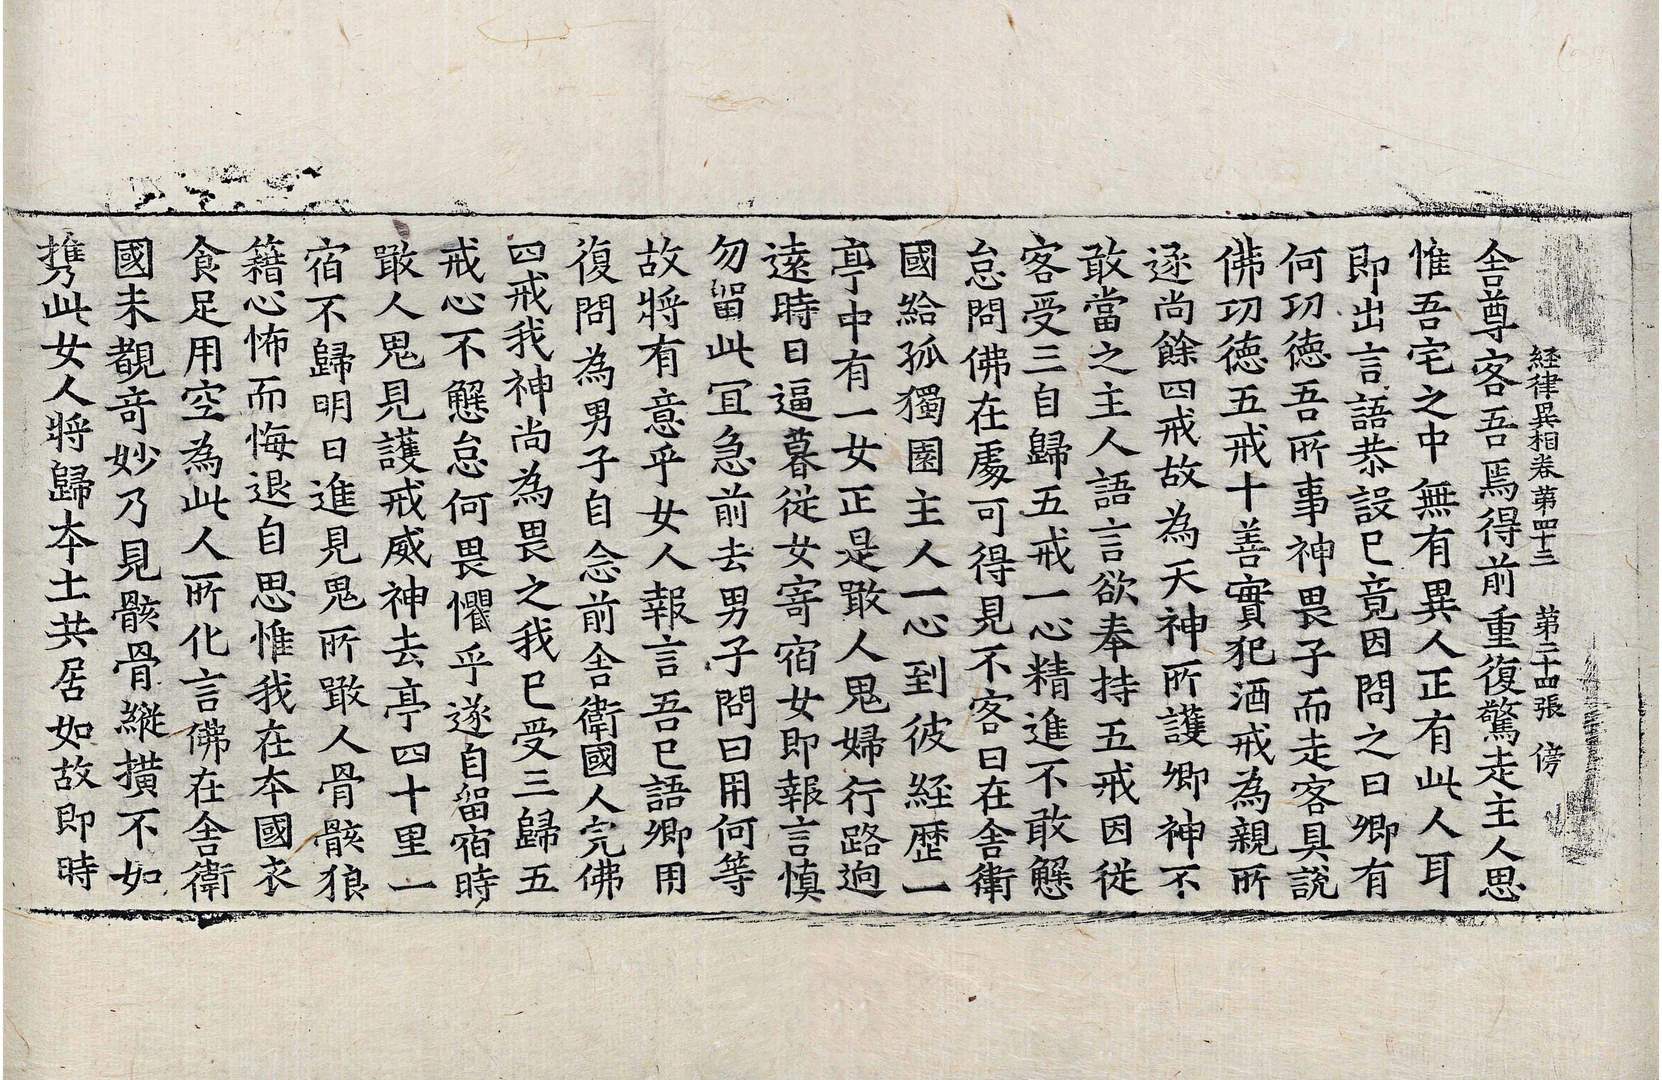 経律異相卷第四十三　第二十四張　傍
舍尊客吾焉得前重復驚走主人思
惟吾宅之中無有異人正有此人耳
即出言語恭設已竟因問之曰卿有
何功徳吾所事神畏子而走客具說
佛功德五戒十善實犯酒戒為親所
逐尚餘四戒故為天神所護卿神不
敢當之主人語言欲奉持五戒因從
客受三自歸五戒一心精進不敢懈
怠問佛在處可得見不客曰在舎衛
國給孤獨園主人一心到彼経歴一
亭中有一女正是噉人鬼婦行路逈
遠時日逼暮從女寄宿女即報言慎
勿留此冝急前去男子問曰用何等
故將有意乎女人報言吾已語卿用
復問為男子自念前舍衛國人完佛
四戒我神尚為畏之我已受三歸五
戒心不懈怠何畏懼乎遂自留宿時
噉人鬼見護戒威神去亭四十里一
宿不歸明日進見鬼所噉人骨骸狼
籍心怖而悔退自思惟我在本國衣
食足用空為此人所化言佛在舎衛
國未覩竒妙乃見骸骨縱撗不如
携此女人將歸本土共居如故即時